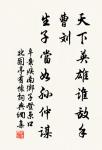 天下英雄谁敌手
曹刘
生子当如孙仲谋
辛弃疾南乡子登京口
北固亭有怀词兴网集